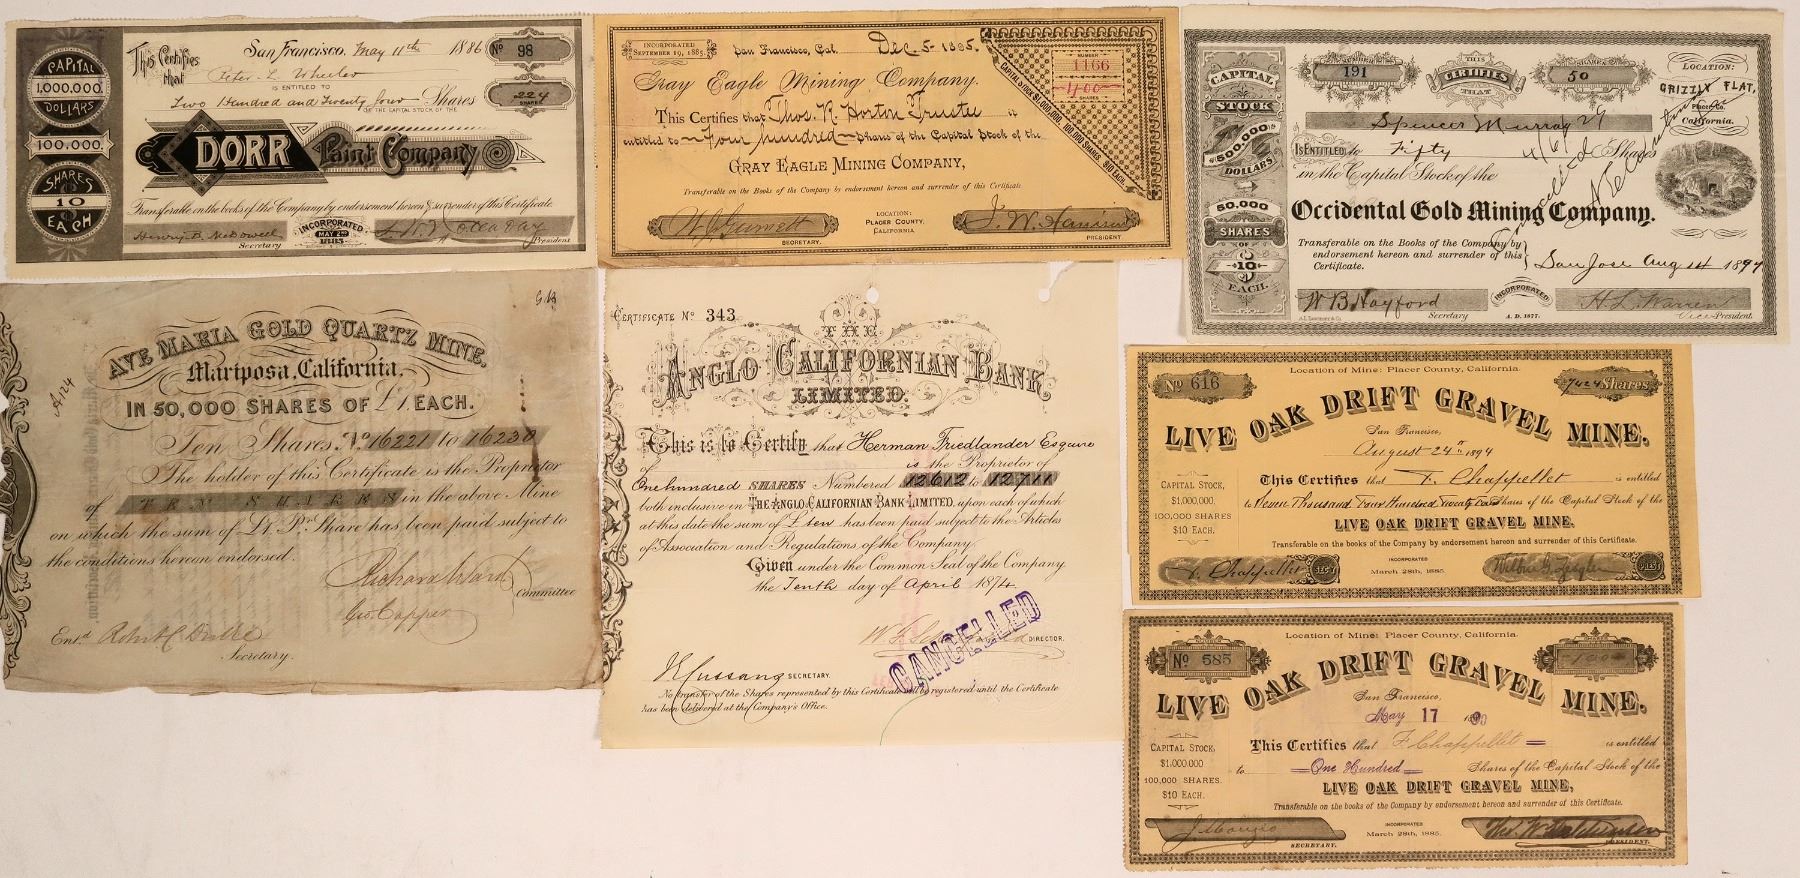 CAPITAL
1,000.000
DOLLARS
100.000.
SHARES
10
EACH
This Certifies that
San Francisco, May 11th 1886
No 98
Peter L. Wheeler
IS ENTITLED TO
Two Hundred and Twenty four Shares
224
SHARES
OF THE CAPITAL STOCK OF THE
DORR Paint Company
Transferable on the books of the Company by endorsement hereon & surrender of this Certificate
INCORPORATED
MAY 2ND
1885
Henry B. McDowell
Secretary
President
INCORPORATED
SEPTEMBER 19, 1885.
San Francisco, Cal. Dec. 5- 1895.
NUMBER
1166
400
SHARES
CAPITAL STOCK $1,000,000, 100,000 SHARES, $10 EACH.
Gray Eagle Mining Company.
This Certifies that Thos. R. Horton Trustee is
entitled to Four hundred Shares of the Capital Stock of the
GRAY EAGLE MINING COMPANY,
Transferable on the Books of the Company by endorsement hereon and surrender of this Certificate
LOCATION:
PLACER COUNTY,
CALIFORNIA.
SECRETARY.
PRESIDENT
CAPITAL
STOCK
500,000
DOLLARS
50,000
SHARES
OF
10
EACH.
NUMBER
191
THIS
CERTIFIES
THAT
SHARES
50
LOCATION:
GRIZZLY FLAT,
Placer Co.
California.
Spencer Murray
IS ENTITLED to Fifty Shares
in the Capital Stock of the
Occidental Gold Mining Company.
Transferable on the Books of the Company by
endorsement hereon and surrender of this
Certificate.
San Jose Aug 14 1897
W B Hayford
Secretary
INCORPORATED
A. D. 1877.
H. L. Warren
Vice-President
AVE MARIA GOLD QUARTZ MINE,
Mariposa, California,
IN 50,000 SHARES OF £1. EACH.
A.124
Ten Shares, No 16221 to 16230
The holder of this Certificate is the Proprietor
of TEN SHARES in the above Mine
on which the sum of £1. Pr. Share has been paid subject to
the conditions hereon endorsed.
Richard Ward
Geo. Capper
Committee
Entd.
Secretary.
CERTIFICATE No 343
THE
ANGLO CALIFORNIAN BANK
LIMITED.
This is to Certify that Herman Friedlander Esquire
of
is the Proprietor of
One hundred SHARES Numbered 12612 to 12711
both inclusive in THE ANGLO-CALIFORNIAN BANK LIMITED, upon each of which
at this date the sum of £ ten has been paid subject to the Articles
of Association and Regulations of the Company.
Given under the Common Seal of the Company
the Tenth day of April 1874
DIRECTOR.
CANCELLED
SECRETARY.
No transfer of the Shares represented by this Certificate will be registered until the Certificate
has been delivered at the Company's Office.
Location of Mine: Placer County, California.
No 616
7424 Shares
LIVE OAK DRIFT GRAVEL MINE.
San Francisco,
August 24th 1894
CAPITAL STOCK,
$1,000,000.
100,000 SHARES
$10 EACH.
This Certifies that F. Chappellet is entitled
to Seven Thousand Four Hundred Twenty Shares of the Capital Stock of the
LIVE OAK DRIFT GRAVEL MINE.
Transferable on the books of the Company by endorsement hereon and surrender of this Certificate.
F. Chappellet
SECT
INCORPORATED
March 28th, 1885.
PREST
Location of Mine: Placer County, California.
No 585
100
LIVE OAK DRIFT GRAVEL MINE.
San Francisco,
May 17 1890
CAPITAL STOCK,
$1,000,000
100,000 SHARES.
$10 EACH.
This Certifies that F. Chappellet is entitled
to One Hundred Shares of the Capital Stock of the
LIVE OAK DRIFT GRAVEL MINE,
Transferable on the books of the Company by endorsement hereon and surrender of this Certificate.
INCORPORATED
March 28th, 1885.
SECRETARY.
PRESIDENT.